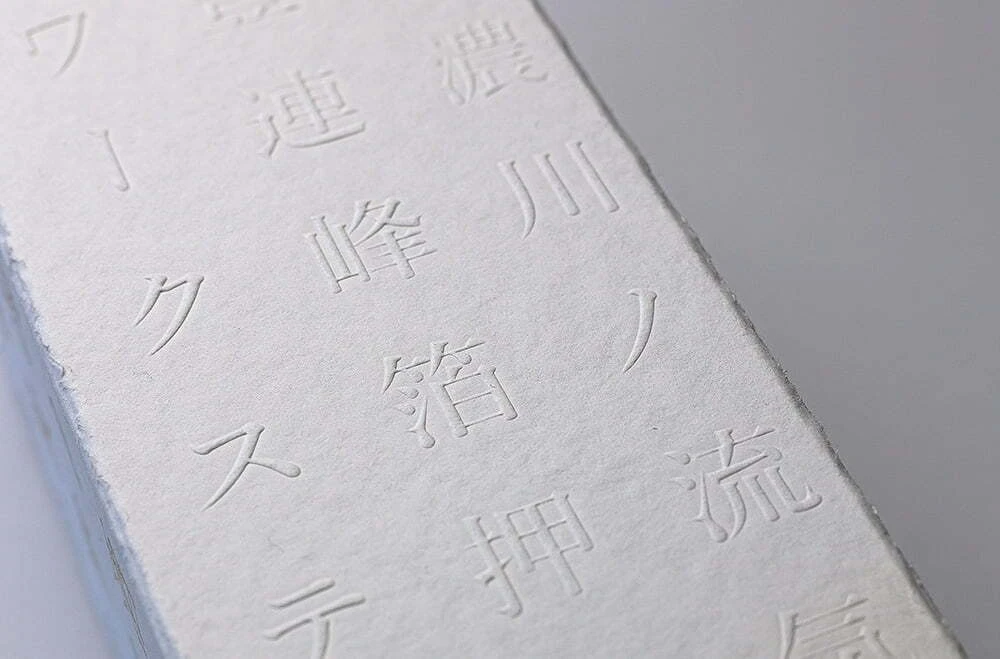 濃川ノ流
連峰箔押
ワークステ